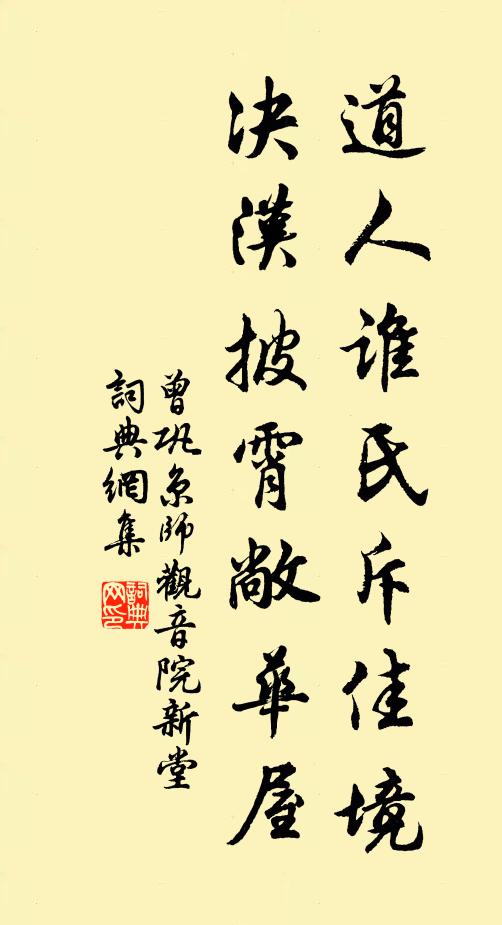 道人誰氏斥佳境
決漢披霄敞華屋
曾巩京師觀音院新堂
詞典網集
詞典网印